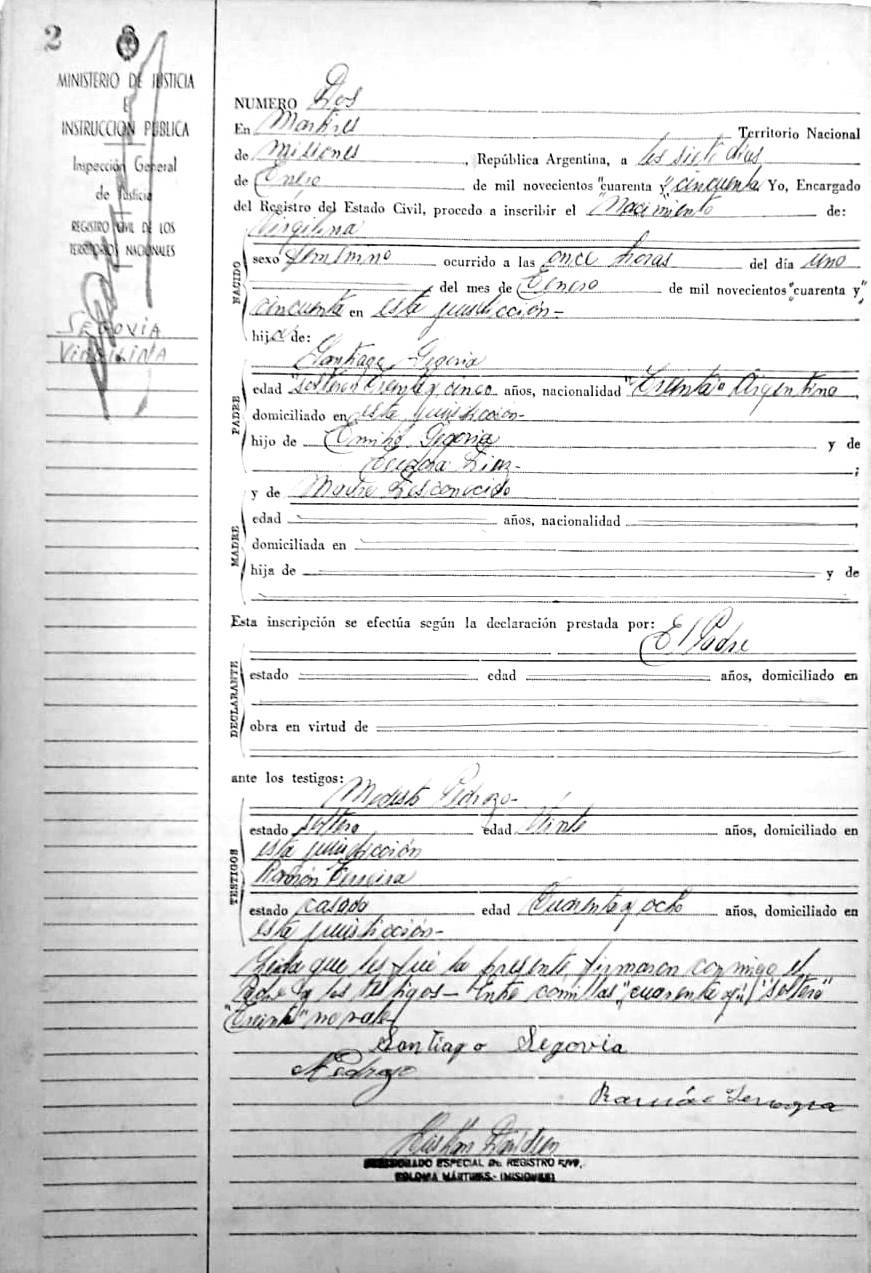 2
MINISTERIO DE JUSTICIA
E
INSTRUCCION PUBLICA
Inspección General
de Justicia
REGISTRO CIVIL DE LOS
TERRITORIOS NACIONALES
SEGOVIA
VIRGILINA
NUMERO Dos
En Martires Territorio Nacional
de Misiones, República Argentina, a los siete días
de Enero de mil novecientos "cuarenta y" cincuenta Yo, Encargado
del Registro del Estado Civil, procedo a inscribir el "Nacimiento de:
Virgilina
NACIDO
sexo femenino ocurrido a las once horas del día uno
del mes de Enero de mil novecientos "cuarenta y"
cincuenta en esta jurisdicción-
hija de:
PADRE
Santiago Segovia
edad "soltero" treinta y cinco años, nacionalidad "Treinta" Argentina,
domiciliado en esta jurisdicción-
hijo de Emilio Segovia y de
Diaz- ;
MADRE
y de Madre Desconocido
edad años, nacionalidad ,
domiciliada en
hija de y de
Esta inscripción se efectúa según la declaración prestada por: El Padre
DECLARANTE
estado edad años, domiciliado en
obra en virtud de
ante los testigos:
TESTIGOS
Modesto Pedrozo-
estado soltero edad Veinte años, domiciliado en
esta jurisdicción
Ramón Ferreira
estado casado edad Cuarenta y ocho años, domiciliado en
esta jurisdicción-
Leida que les fué la presente, firmaron conmigo el
Padre y los testigos- Entre comillas "cuarenta y"/"soltero"
"Treinta" no vale/
Santiago Segovia
M Pedrozo
Ramón
ESPECIAL DE REGISTRO CIVIL
COLONIA MÁRTIRES.- (MISIONES)